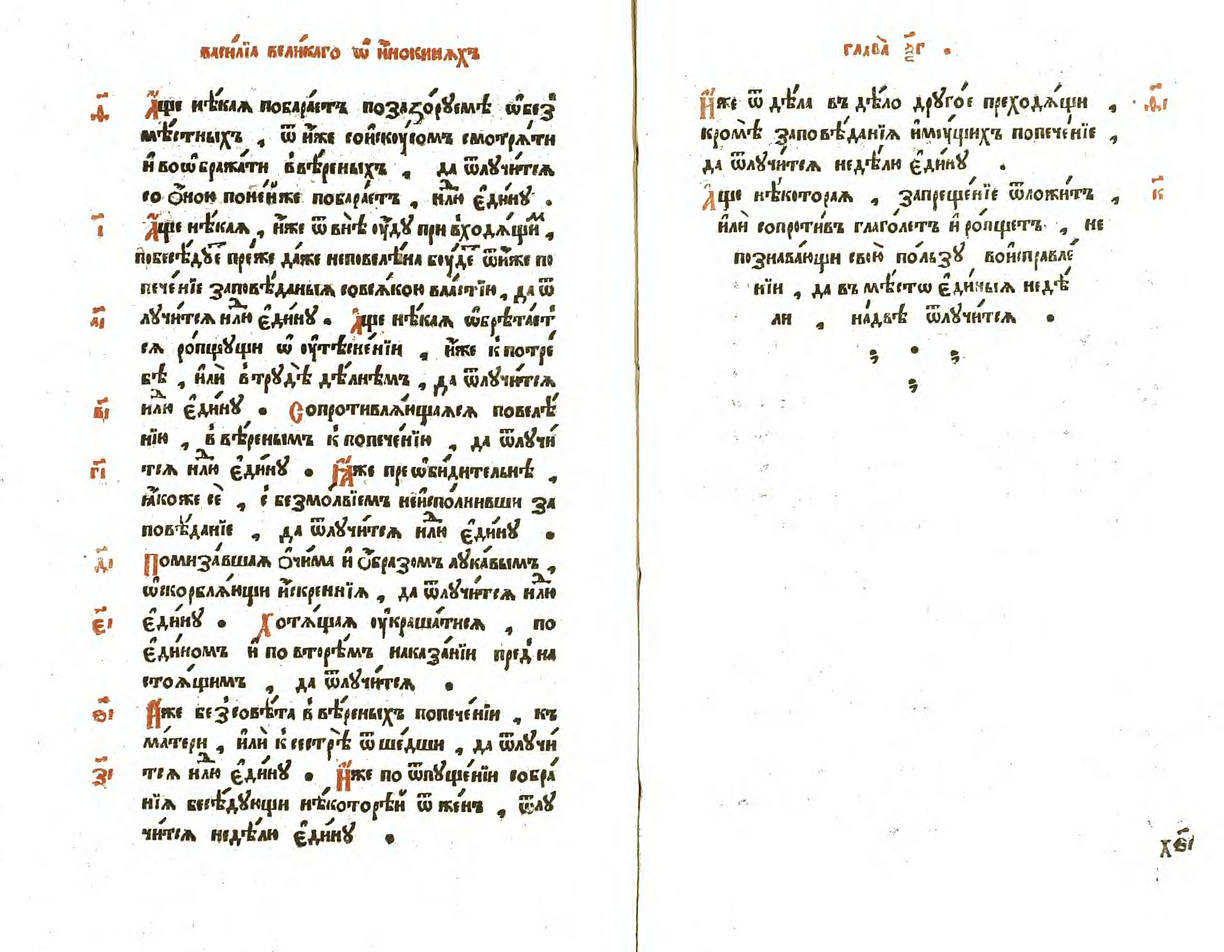 василїа великаго ѡ и҆нокинѧхъ
ѳ҃
А҆ще нѣ́каѧ поварѧ́етъ позазо́руемѣ ѡ҆без̾
мѣ́стныхъ , ѿ ни́же соискоу́сомъ смотрѧ́ти
и҆ воѡбража́ти в̾вѣ́реныхъ , да ѿлучи́тсѧ
со ѻ҆́ною поне́иже поварѧ́етъ , нⷣлю є҆ди́нꙋ .
і҃
А҆ще нѣ́каѧ , и҆́же ѿвнѣ̀ ѹ҆́дꙋ при в̾ходѧ́щиⷨ ,
побесѣ́дꙋеⷮ пре́же да́же неповелѣна бꙋ́деⷮ ѿни́же по
пече́нїе заповѣ́даныѧ совсѧ́кою вла́стїю , да ѿ
лꙋчи́тсѧ нⷣлю є҆ди́нꙋ . А҆ще нѣ́каѧ ѡ҆брѣ́таетⸯ
а҃і
сѧ ро́пщꙋщи ѡ ѹ҆тѣсне́нїи , и҆́же к̾потре́
бѣ , и҆лѝ в̾трꙋ́дѣ дѣ́лнемъ , да ѿлꙋчи́тсѧ
нⷣлю є҆ди́нꙋ . Сопротивлѧ́ющаѧсѧ повелѣ́
в҃і
нїю , в̾вѣ́ренымъ к̾попече́нїю , да ѿлꙋчи́
тсѧ нⷣлю є҆ди́нꙋ . Ꙗ҆́же преѡби́дительнѣ ,
г҃і
ꙗ҆́коже сѐ , с̾ безмо́лвїемъ неиспо́лнивши за
повѣ́данїе , да ѿлꙋчи́тсѧ нⷣлю є҆ди́нꙋ .
д҃і
Помиза́вшаѧ ѻ҆чи́ма и҆ ѻ҆́бразомъ лꙋка́вымъ ,
ѡ҆скорблѧ́ющи и҆́скреннїѧ , да ѿлꙋчи́тсѧ нⷣлю
є҃і
є҆ди́нꙋ . Хотѧ́щаѧ ѹ҆краша́тисѧ , по
є҆ди́номъ и҆ по вторѣ́мъ наказа́нїи пред̾ на
стоѧ́щимъ , да ѿлꙋчи́тсѧ .
ѕ҃і
Ꙗ҆́же без̾совѣ́та в̾вѣ́реныхъ попече́нїи , къ
ма́тери , и҆лѝ к̾сестрѣ̀ ѿше́дши , да ѿлꙋчи́
тсѧ нⷣлю є҆ди́нꙋ . И҆́же по ѿпꙋще́нїи собра́
з҃і
нїѧ бесѣ́дꙋющи нѣ́которѣй ѿ же́нъ , ѿлꙋ
чи́тсѧ недѣ́лю є҆ди́нꙋ .
глава̀ н҃г .
И҆́же ѿ дѣ́ла въ дѣ́ло дрꙋго́е преходѧ́щи ,
кро́мѣ заповѣ́данїѧ и҆мꙋ́щихъ попече́нїе ,
да ѿлꙋчи́тсѧ недѣ́лю є҆ди́нꙋ .
А҆ще нѣ́котораѧ , запреще́нїе ѿложи́тъ ,
к҃
и҆лѝ сопроти́въ глаго́летъ и҆ ро́пщетъ , не
познава́ющи свою̀ по́льзꙋ воисправле́
нїи , да въ мѣ́стѡ є҆ди́ныѧ недѣ́
ли , на́двѣ ѿлꙋчи́тсѧ .